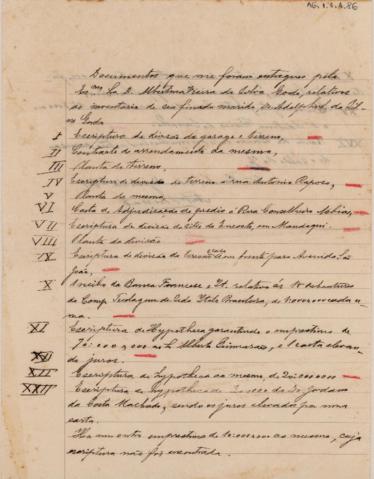 AG. 1. 1. A. 86
Documentos que me foram entregues pela
Exma Sra D. Albertina Vieira da Silva Gordo, relativos
ao inventario de seu finado marido, Dr Adolpho A. da Sil-
va Gordo
I Escriptura de divisa de garage e terreno.
II Contracto de arrendamento da mesma.
III Planta do terreno.
IV Escriptura de divisão de terreno á rua Antonio Raposo,
V Planta do mesmo,
VI Carta de Adjudicação do predio á Rua Conselheiro Nebias,
VII Escriptura de divisão do sitio do , em Mandaqui.
VIII Planta da divisão
IX Escriptura de divisão do terreno com frente para Avenida São
João,
X Recibo da Banca Francese e It. relativo ás debentures
da Comp. Tecelagem de Seda Italo Brasileira, de cada u-
ma.
XI Escriptura de Hypotheca garantindo o emprestimo de
70:000$000 ao Sr Alberto Guimarães, e 1 carta elevan-
XII do juros.
XIII Escriptura de hypotheca ao mesmo, de 20:000$000
Escriptura de hypotheca de ao Dr
da Costa Machado, sendo os juros elevados por uma
carta.
Ha um outro emprestimo de ao mesmo, cuja
escriptura não foi encontrada.